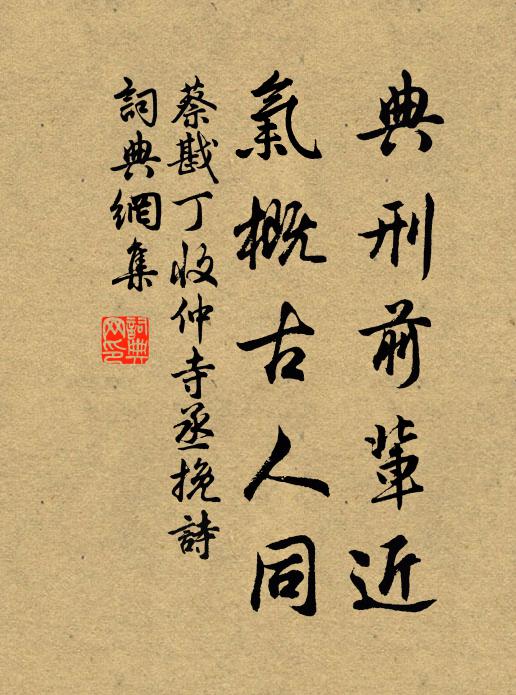 典刑前輩近
氣概古人同
蔡戡丁收仲寺丞挽詩
詞典網集
詞典網印